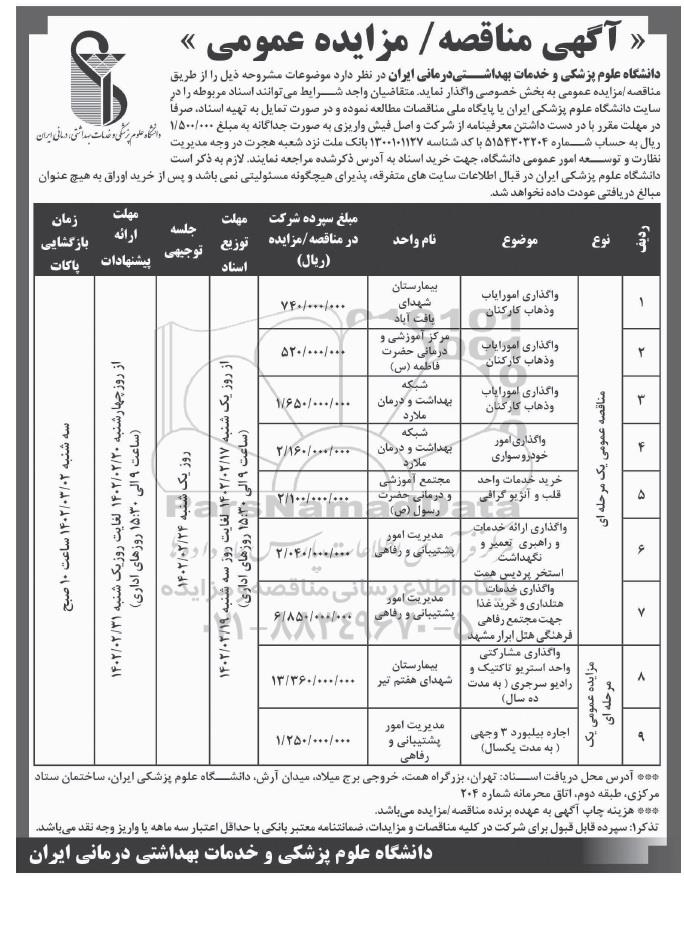 « آگهی مناقصه/ مزایده عمومی »
دانشگاه علوم پزشکی و خدمات بهداشتی، درمانی ایران
دانشگاه علوم پزشکی و خدمات بهداشتی‌درمانی ایران در نظر دارد موضوعات مشروحه ذیل را از طریق
مناقصه/مزایده عمومی به بخش خصوصی واگذار نماید. متقاضیان واجد شرایط می‌توانند اسناد مربوطه را در
سایت دانشگاه علوم پزشکی ایران یا پایگاه ملی مناقصات مطالعه نموده و در صورت تمایل به تهیه اسناد، صرفا
در مهلت مقرر با در دست داشتن معرفینامه از شرکت و اصل فیش واریزی به صورت جداگانه به مبلغ ۱/۵۰۰/۰۰۰
ریال به حساب شماره ۵۱۵۴۳۰۳۲۰۴ با کد شناسه ۱۳۰۰۱۰۱۱۲۷ بانک ملت نزد شعبه هجرت در وجه مدیریت
نظارت و توسعه امور عمومی دانشگاه، جهت خرید اسناد به آدرس ذکرشده مراجعه نمایند. لازم به ذکر است
دانشگاه علوم پزشکی ایران در قبال اطلاعات سایت های متفرقه، پذیرای هیچگونه مسئولیتی نمی باشد و پس از خرید اوراق به هیچ عنوان
مبالغ دریافتی عودت داده نخواهد شد.
ردیف
نوع
موضوع
نام واحد
مبلغ سپرده شرکت
در مناقصه/مزایده
(ریال)
مهلت
توزیع
اسناد
جلسه
توجیهی
مهلت
ارائه
پیشنهادات
زمان
بازگشایی
پاکات
مناقصه عمومی یک مرحله ای
۱
واگذاری امورایاب
وذهاب کارکنان
بیمارستان
شهدای
یافت آباد
۷۴۰/۰۰۰/۰۰۰
۲
واگذاری امورایاب
وذهاب کارکنان
مرکز آموزشی و
درمانی حضرت
فاطمه (س)
۵۲۰/۰۰۰/۰۰۰
۳
واگذاری امورایاب
وذهاب کارکنان
شبکه
بهداشت و درمان
ملارد
۱/۶۵۰/۰۰۰/۰۰۰
۴
واگذاری‌امور
خودروسواری
شبکه
بهداشت و درمان
ملارد
۲/۱۶۰/۰۰۰/۰۰۰
۵
خرید خدمات واحد
قلب و آنژیو گرافی
مجتمع آموزشی
و درمانی حضرت
رسول (ص)
۲/۱۰۰/۰۰۰/۰۰۰
۶
واگذاری ارائه خدمات
و راهبری تعمیر و
نگهداشت
استخر پردیس همت
مدیریت امور
پشتیبانی و رفاهی
۲/۰۴۰/۰۰۰/۰۰۰
۷
واگذاری خدمات
هتلداری و خرید غذا
جهت مجتمع رفاهی
فرهنگی هتل ابرار مشهد
مدیریت امور
پشتیبانی و رفاهی
۶/۸۵۰/۰۰۰/۰۰۰
مزایده عمومی یک
مرحله ای
۸
واگذاری مشارکتی
واحد استریو تاکتیک و
رادیو سرجری ( به مدت
ده سال)
بیمارستان
شهدای هفتم تیر
۱۳/۳۶۰/۰۰۰/۰۰۰
۹
اجاره بیلبورد ۳ وجهی
( به مدت یکسال)
مدیریت امور
پشتیبانی و
رفاهی
۱/۲۵۰/۰۰۰/۰۰۰
از روز یک شنبه ۱۴۰۲/۰۲/۱۷ لغایت روز سه شنبه ۱۴۰۲/۰۲/۱۹
(ساعت ۹ الی ۱۵:۳۰ روزهای اداری)
روز یک شنبه ۱۴۰۲/۰۲/۲۴
از روزچهارشنبه ۱۴۰۲/۰۲/۲۰ لغایت روزیک شنبه ۱۴۰۲/۰۲/۳۱
(ساعت ۹ الی ۱۵:۳۰ روزهای اداری)
سه شنبه ۱۴۰۲/۰۳/۰۲ ساعت ۱۰ صبح
ParsNamadData
۰۲۱-۸۸۳۴۹۶۷۰-۵
*** آدرس محل دریافت اسناد: تهران، بزرگراه همت، خروجی برج میلاد، میدان آرش، دانشگاه علوم پزشکی ایران، ساختمان ستاد
مرکزی، طبقه دوم، اتاق محرمانه شماره ۲۰۴
*** هزینه چاپ آگهی به عهده برنده مناقصه/مزایده می‌باشد.
تذکر۱: سپرده قابل قبول برای شرکت در کلیه مناقصات و مزایدات، ضمانتنامه معتبر بانکی با حداقل اعتبار سه ماهه یا واریز وجه نقد می‌باشد.
دانشگاه علوم پزشکی و خدمات بهداشتی درمانی ایران